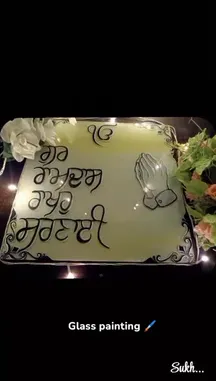 ੴ
ਗੁਰ
ਰਾਮਦਾਸ
ਰਾਖਹੁ
ਸਰਣਾਈ
Glass painting 🖌️
Sukh...